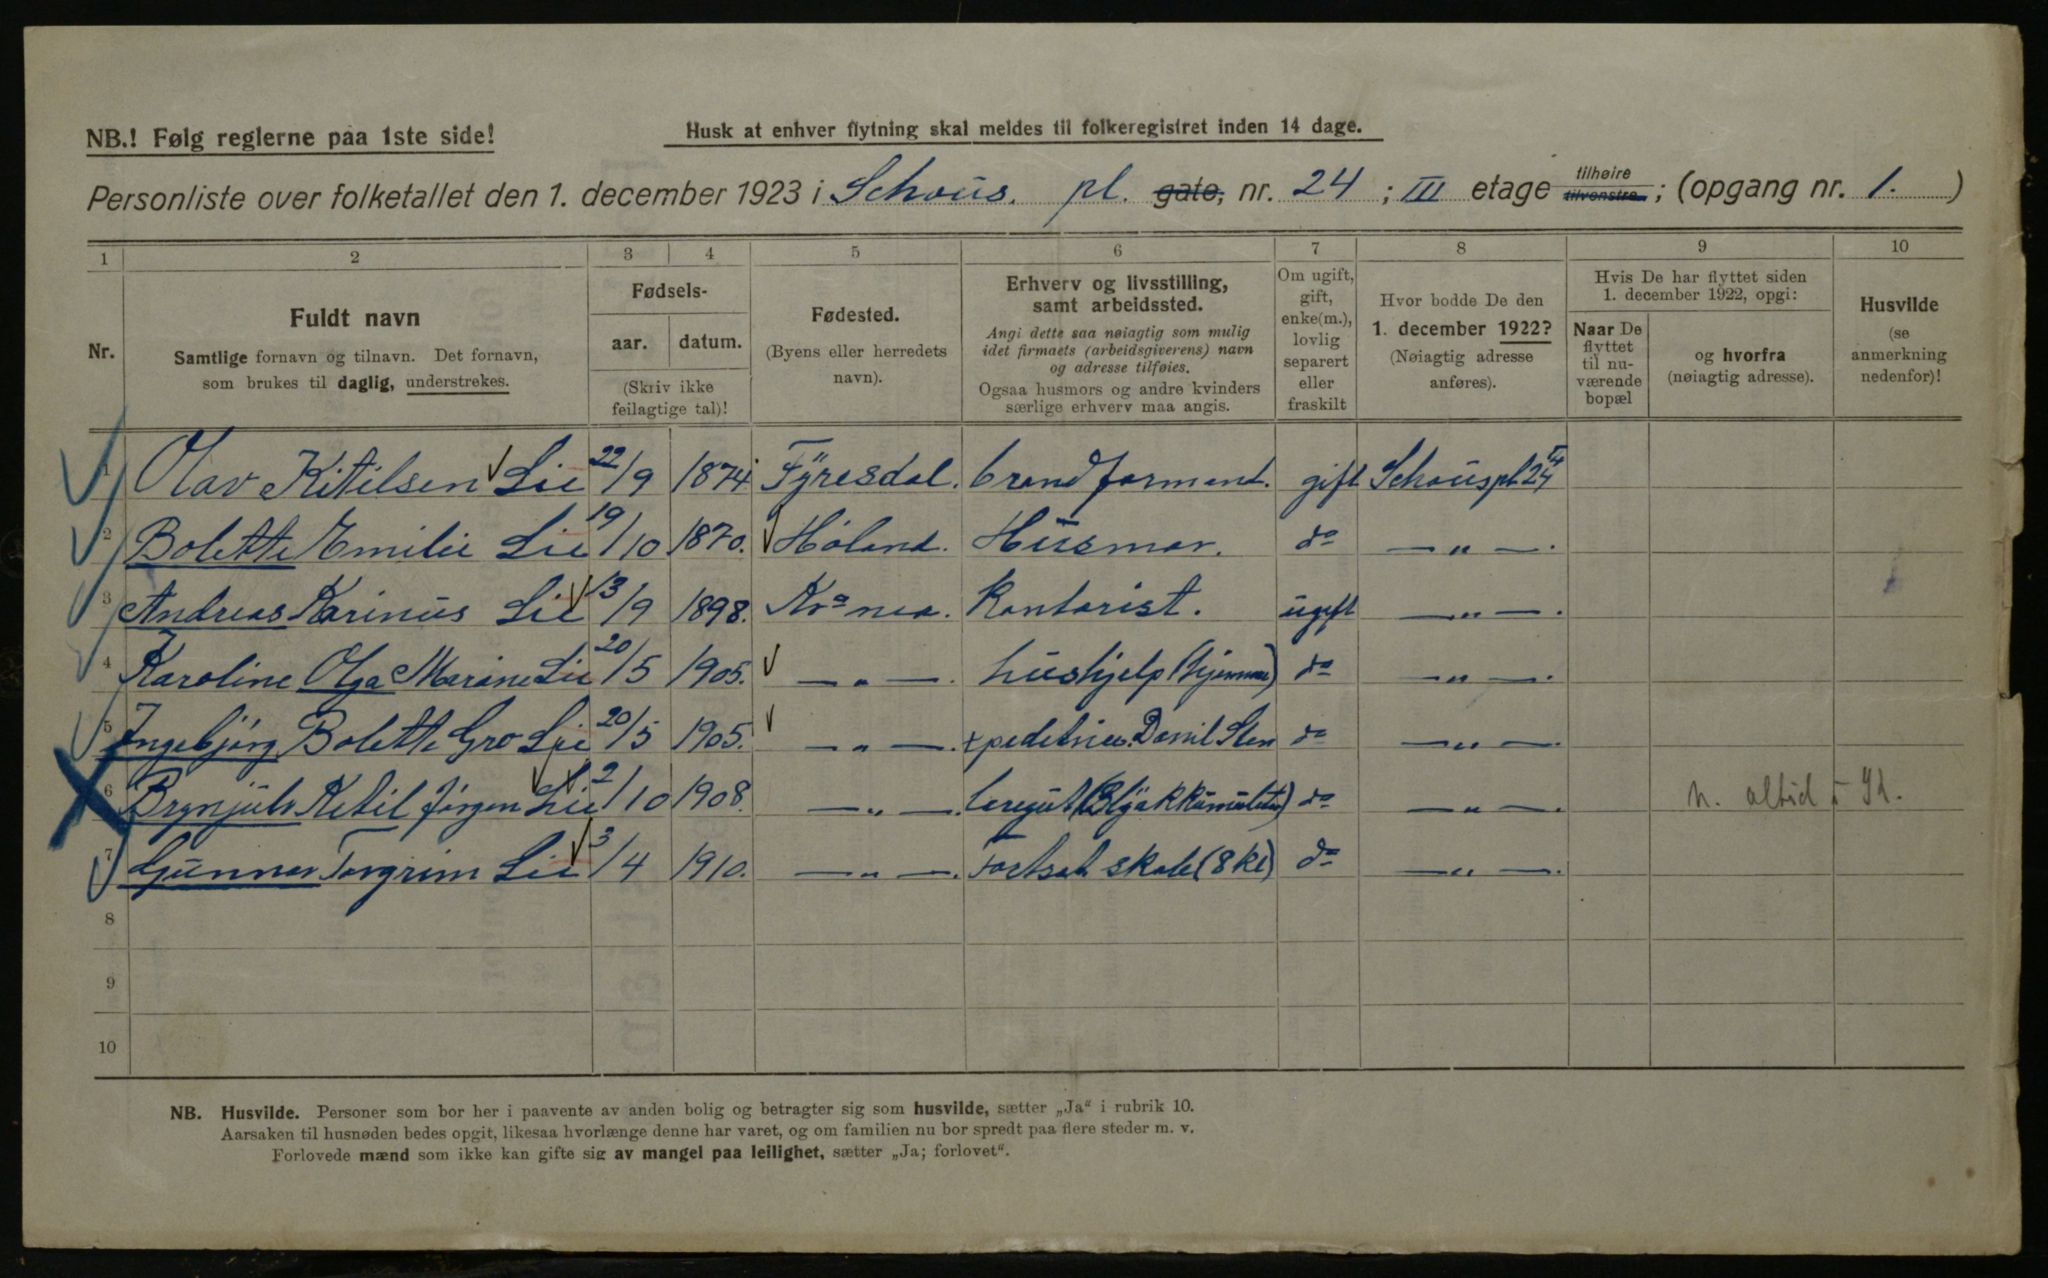 NB.! Følg reglerne paa 1ste side!
Husk at enhver flytning skal meldes til folkeregistret inden 14 dage.
Personliste over folketallet den 1. december 1923 i Schous. pl. gate, nr. 24 ; III etage tilhøire tilvenstre ; (opgang nr. 1. )
1 2 3 4 5 6 7 8 9 10
Nr.
Fuldt navn
Samtlige fornavn og tilnavn. Det fornavn,
som brukes til daglig, understrekes.
Fødsels-
aar. datum.
(Skriv ikke
feilagtige tal)!
Fødested.
(Byens eller herredets
navn).
Erhverv og livsstilling,
samt arbeidssted.
Angi dette saa nøiagtig som mulig
idet firmaets (arbeidsgiverens) navn
og adresse tilføies.
Ogsaa husmors og andre kvinders
særlige erhverv maa angis.
Om ugift,
gift,
enke(m.),
lovlig
separert
eller
fraskilt
Hvor bodde De den
1. december 1922?
(Nøiagtig adresse
anføres).
Hvis De har flyttet siden
1. december 1922, opgi:
Naar De
flyttet
til nu-
værende
bopæl
og hvorfra
(nøiagtig adresse).
Husvilde
(se
anmerkning
nedenfor)!
1 Olav Kitilsen Lie 22/9 1874. Fyresdal. brandformand. gift Schouspl 24
2 Bolette Emilie Lie 19/10 1870. Høland. Husmor. do — „ —.
3 Andreas Marinus Lie 13/9 1898. Kra nia. Kontorist. ugift — „ —.
4 Karoline Olga Marine Lie 20/5 1905. — „ —. hushjelp (hjemme) do — „ —.
5 Ingebjørg Bolette Gro Lie 20/5 1905. — „ —. do — „ —.
6 Brynjulv Ketil Jørgen Lie 2/10 1908. — „ —. do — „ —. n. altid
7 Gunnar Torgrim Lie 3/4 1910. — „ —. Fortsat. skole (8 kl) do — „ —.
8
9
10
NB. Husvilde. Personer som bor her i paavente av anden bolig og betragter sig som husvilde, sætter „Ja“ i rubrik 10.
Aarsaken til husnøden bedes opgit, likesaa hvorlænge denne har varet, og om familien nu bor spredt paa flere steder m. v.
Forlovede mænd som ikke kan gifte sig av mangel paa leilighet, sætter „Ja; forlovet“.